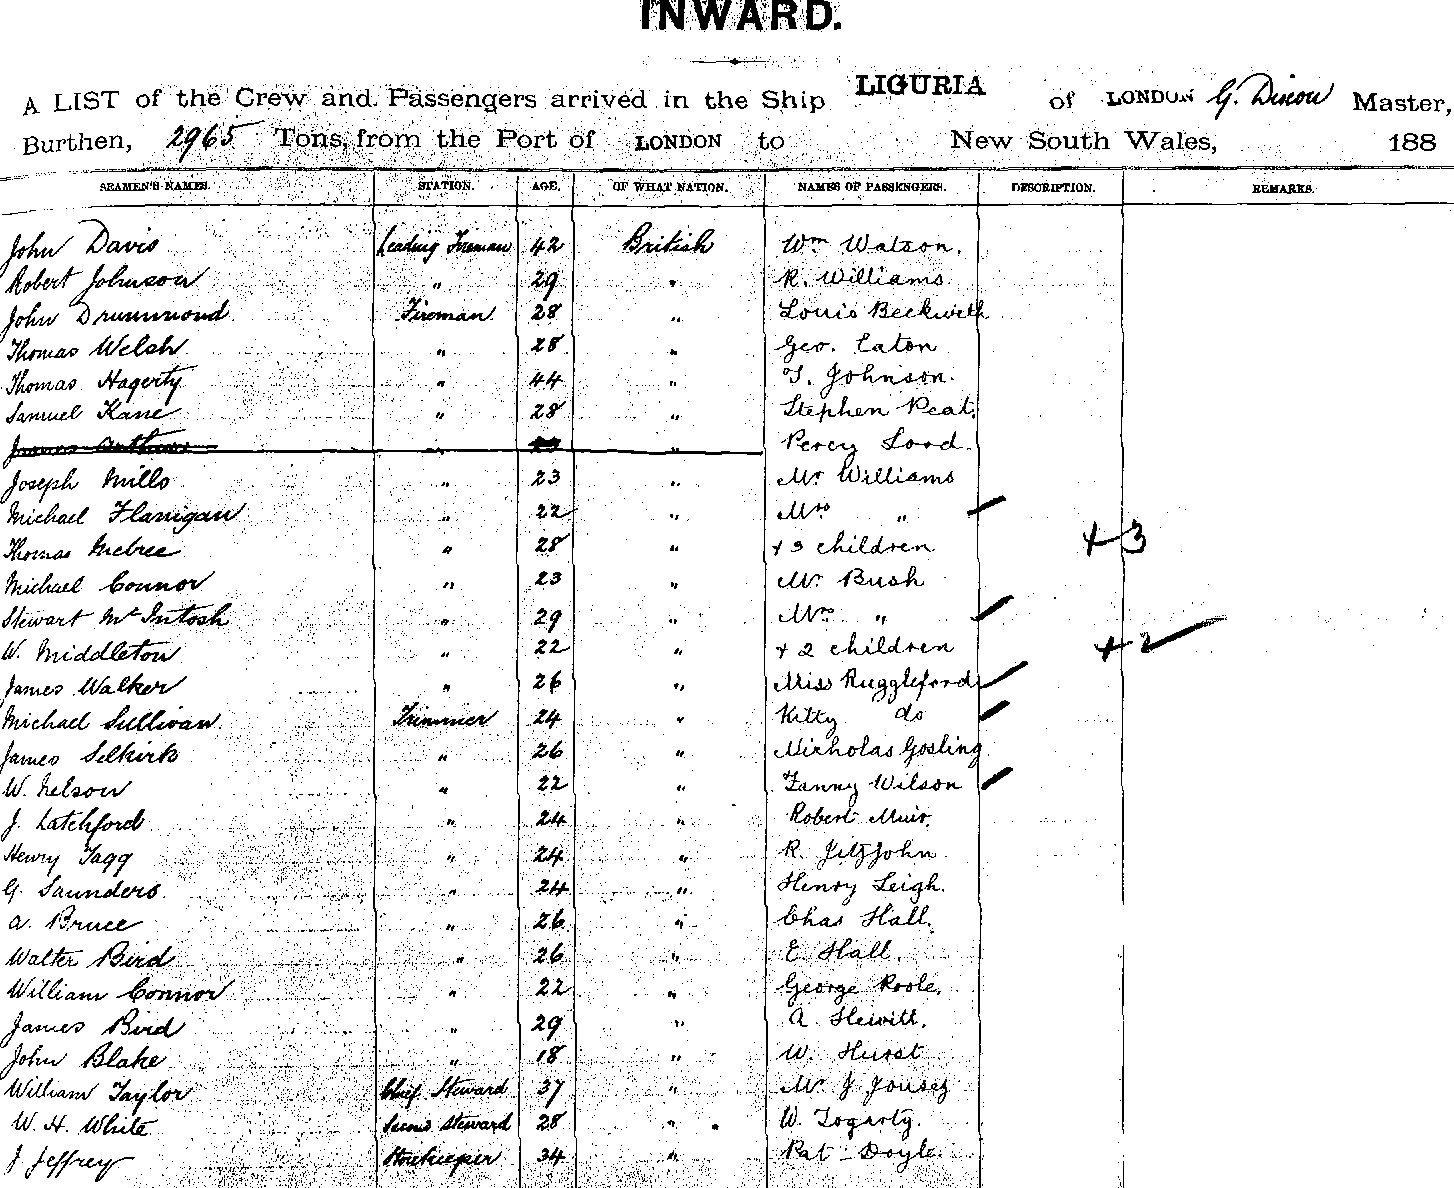 INWARD.
A LIST of the Crew and Passengers arrived in the Ship LIGURIA of LONDON G. Dixon Master,
Burthen, 2965 Tons, from the Port of LONDON to New South Wales, 188
SEAMEN'S NAMES. STATION. AGE. OF WHAT NATION. NAMES OF PASSENGERS. DESCRIPTION. REMARKS.
John Davis Leading Fireman 42 British Wm Watson.
Robert Johnson " 29 " R. Williams
John Drummond Fireman 28 " Louis Beckwith
Thomas Welsh " 28 " Geo. Eaton
Thomas Hagerty " 44 " T. Johnson.
Samuel Kane " 28 " Stephen Peat.
James " " Percy Lord
Joseph Mills " 23 " Mr Williams
Michael Flanigan " 22 " Mrs "
Thomas " 28 " + 3 children +3
Michael Connor " 23 " Mr Bush
Stewart McIntosh " 29 " Mrs "
W. Middleton " 22 " + 2 children +2
James Walker " 26 " Miss Ruggleford
Michael Sullivan. Trimmer 24 " Kitty do
James Selkirk " 26 " Nicholas Gosling
W. Nelson " 22 " Fanny Wilson
J. Latchford " 24 " Robert Muir.
Henry Tagg " 24 " R. FitzJohn
G. Saunders. " 24 " Henry Leigh.
A. Bruce " 26 " Chas Hall.
Walter Bird " 26 " E Hall.
William Connor " 22 " George Poole.
James Bird " 29 " A. Hewitt.
John Blake " 18 " W. Hurst
William Taylor Chief Steward 37 " Mr J
W. H. White Second Steward 28 " W. Fogarty.
J Jeffrey Storekeeper 34 " Pat Doyle.